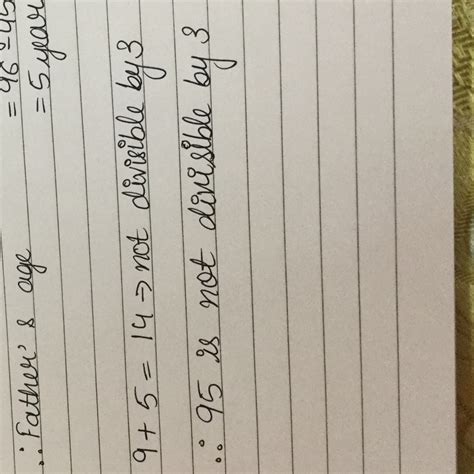 ∴ Father's age = 96-45
= 5 year
9+5=14 → not divisible by 3
∴ 95 is not divisible by 3